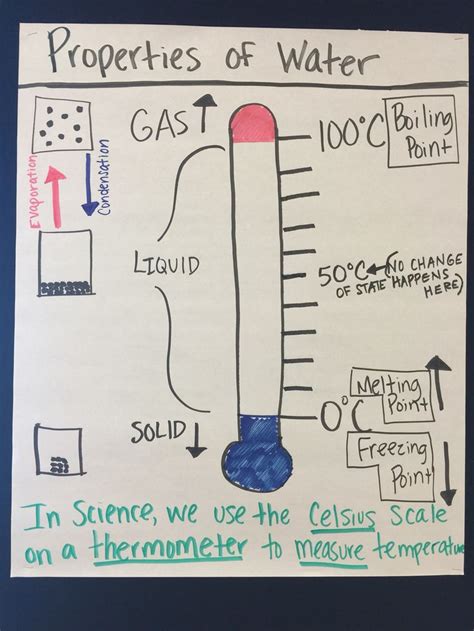 Properties of Water
GAS
100°C
Boiling
Point
Evaporation
Condensation
LIQUID
50°C
(NO CHANGE
OF STATE HAPPENS
HERE)
Melting
Point
0°C
SOLID
Freezing
Point
In Science, we use the Celsius Scale
on a thermometer to measure temperature